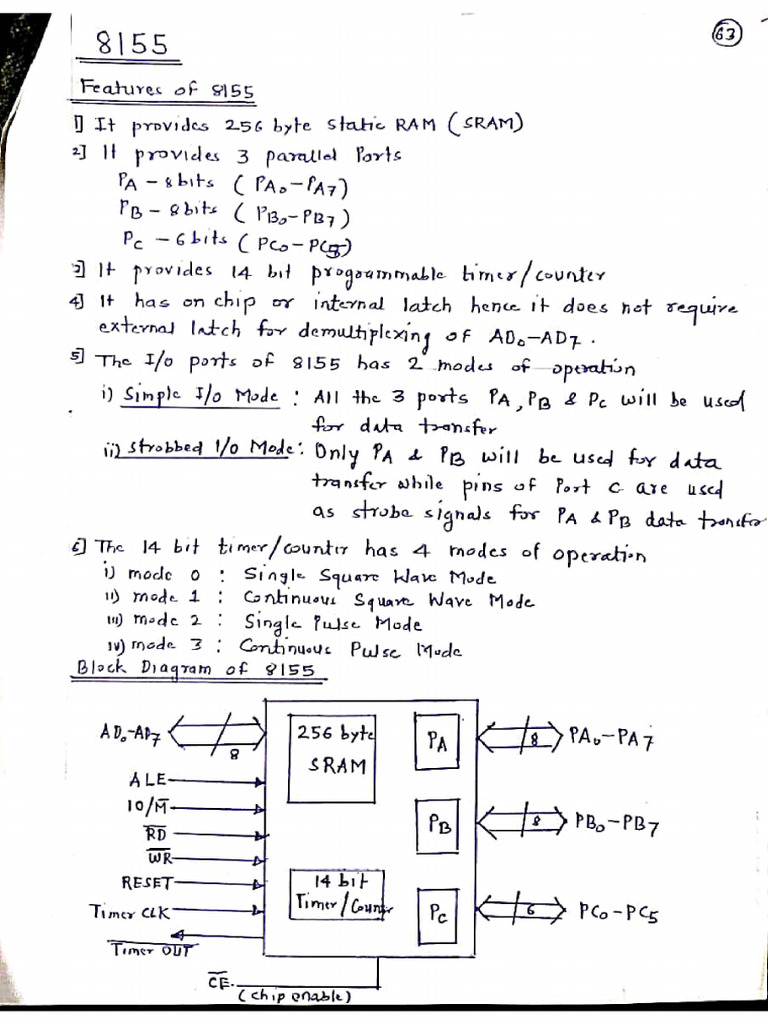 63
8155
Features of 8155
1] It provides 256 byte static RAM (SRAM)
2] It provides 3 parallel Ports
PA – 8bits (PA0–PA7)
PB – 8bits (PB0–PB7)
PC – 6bits (PC0–PC5)
3] It provides 14 bit programmable timer/counter
4] It has on chip or internal latch hence it does not require
external latch for demultiplexing of AD0–AD7.
5] The I/O ports of 8155 has 2 modes of operation
i) Simple I/O Mode : All the 3 ports PA, PB & PC will be used
for data transfer
ii) Strobbed I/O Mode : Only PA & PB will be used for data
transfer while pins of Port C are used
as strobe signals for PA & PB data transfer
6] The 14 bit timer/counter has 4 modes of operation
i) mode 0 : Single Square Wave Mode
ii) mode 1 : Continuous Square Wave Mode
iii) mode 2 : Single Pulse Mode
iv) mode 3 : Continuous Pulse Mode
Block Diagram of 8155
AD0–AD7 8 256 byte PA 8 PA0–PA7
SRAM
ALE
IO/M̅
R̅D̅ PB 8 PB0–PB7
W̅R̅
RESET 14 bit
Timer CLK Timer/Counter PC 6 PC0–PC5
T̅i̅m̅e̅r̅ O̅U̅T̅
C̅E̅
(chip enable)